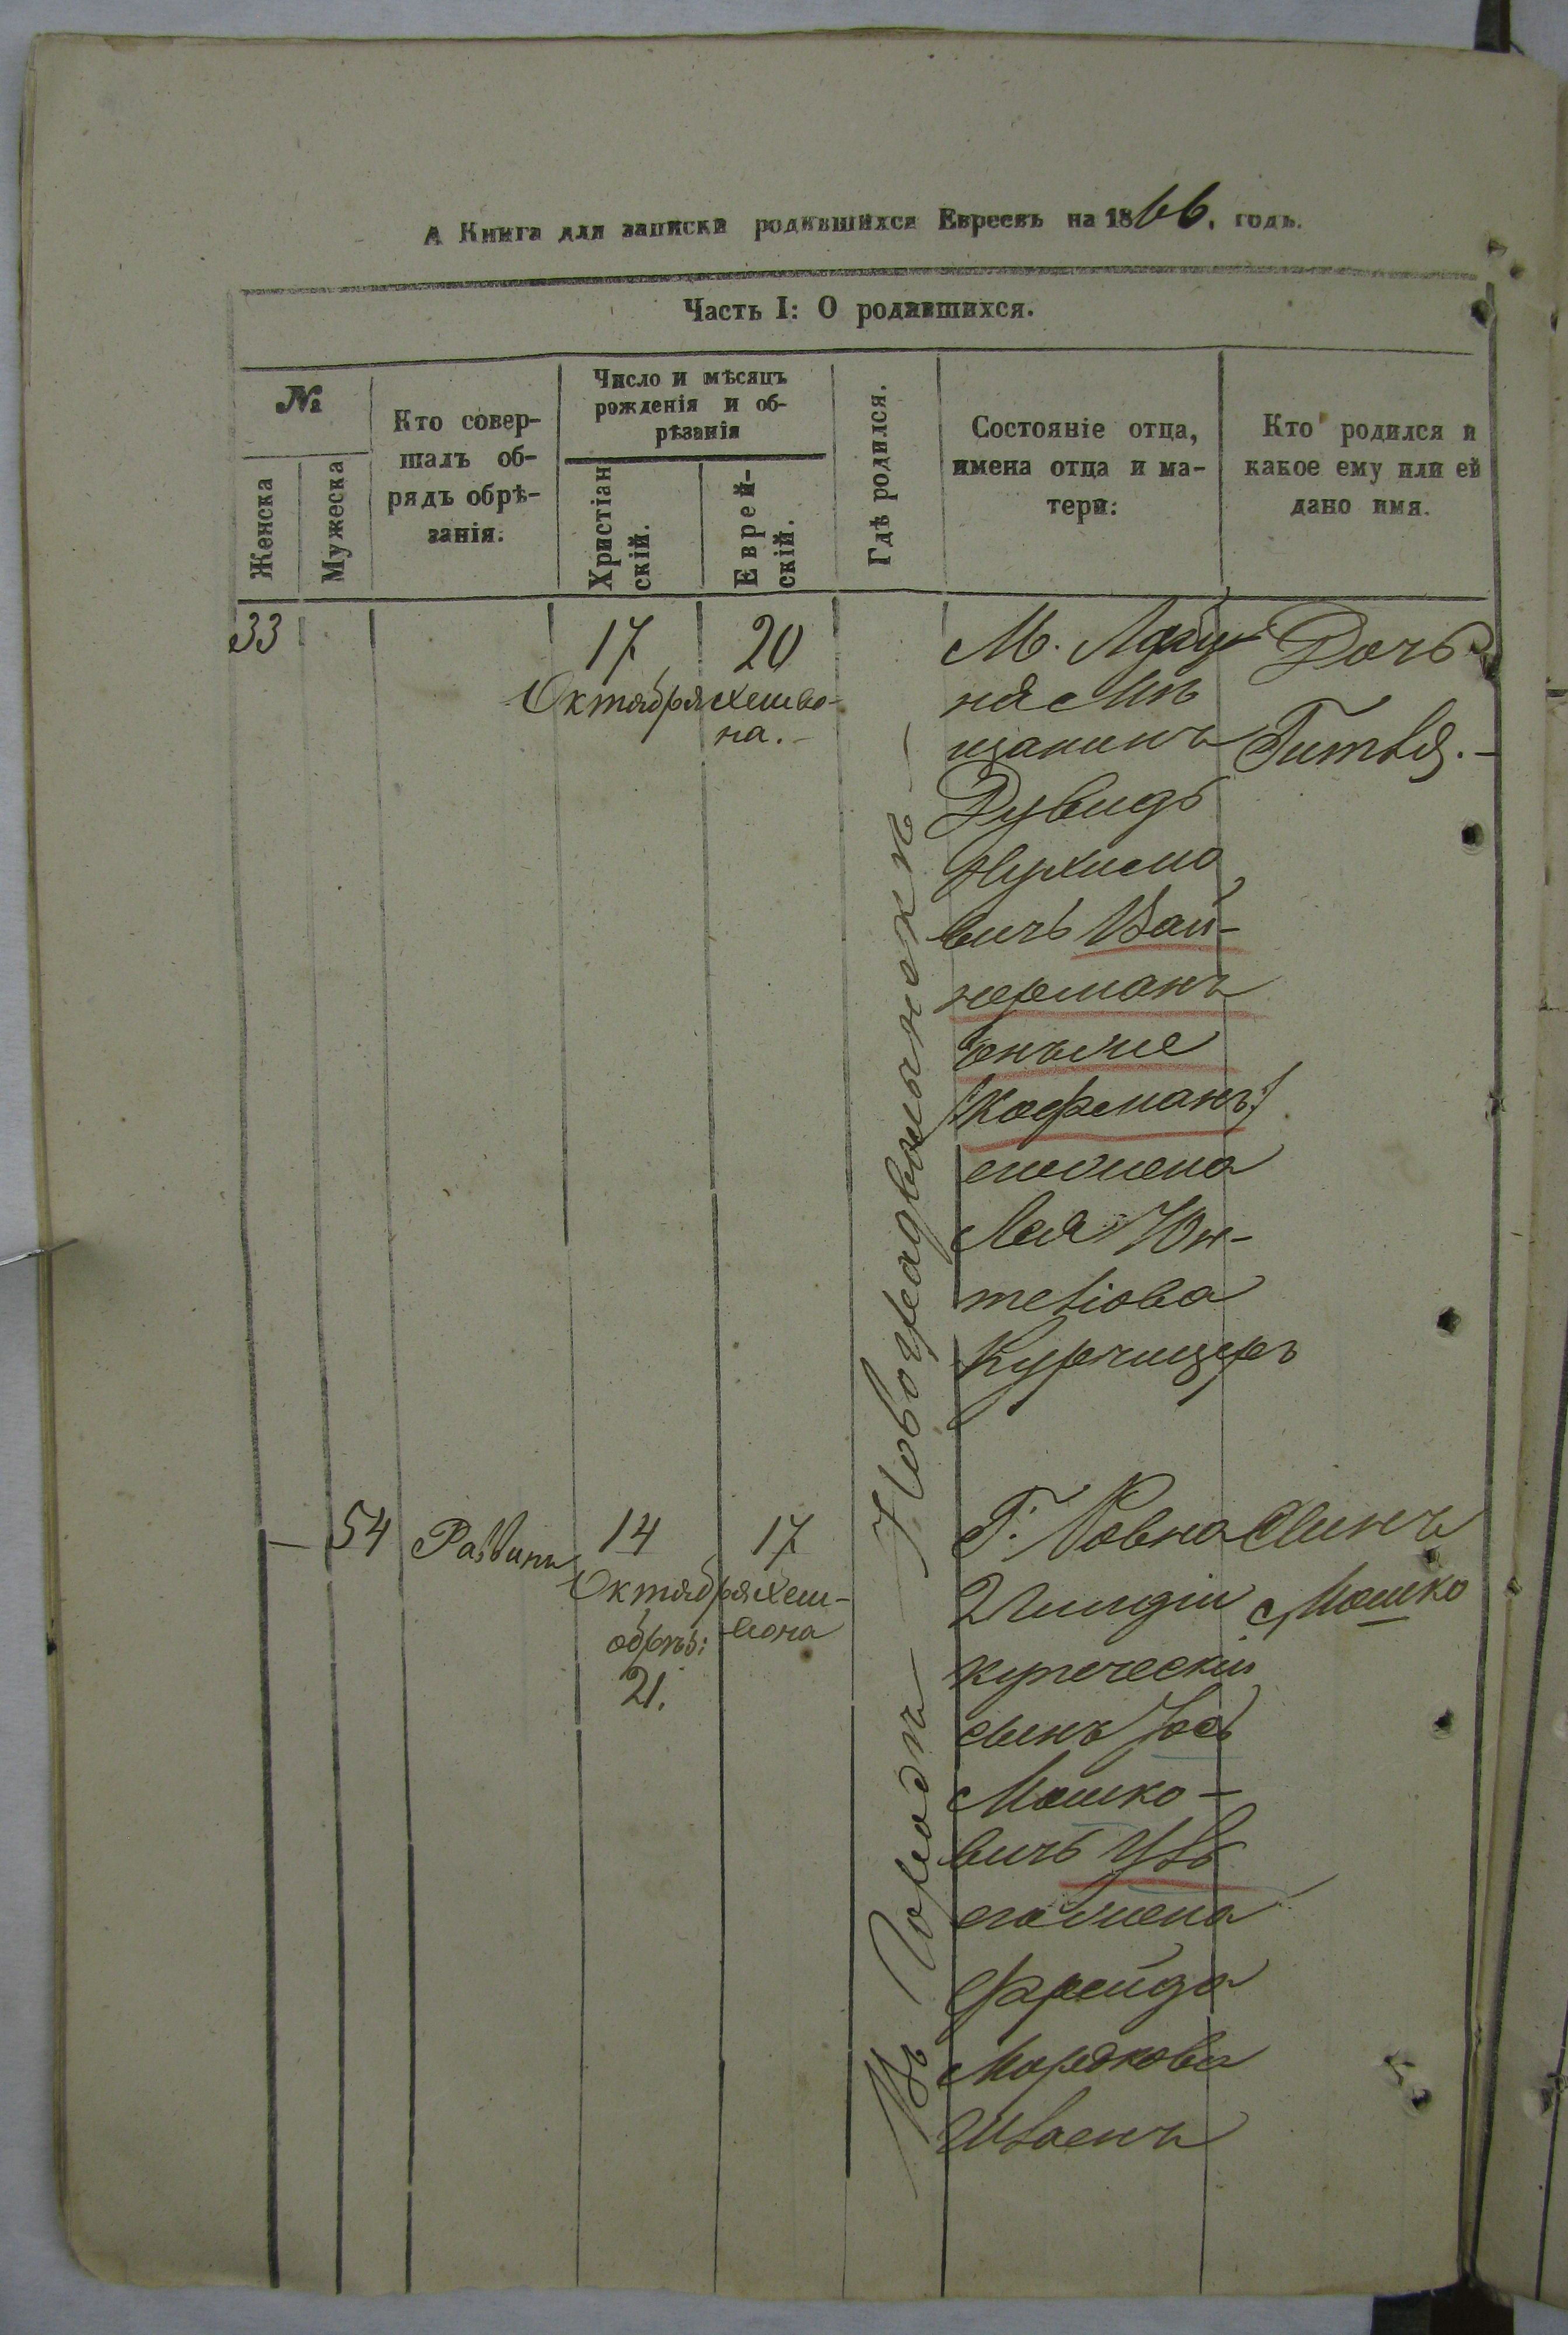 А Книга для записки родившихся Евреевъ на 1866. годъ.
Часть I: О родившихся.
№
Женска
Мужеска
Кто совер-
шалъ об-
рядъ обрѣ-
занія.
Число и мѣсяцъ
рожденія и об-
рѣзанія
Христіан
скій.
Еврей-
скій.
Гдѣ родился.
Состояніе отца,
имена отца и ма-
тери:
Кто родился и
какое ему или ей
дано имя.
33
17
Октября
20
хешво-
на.
Въ Городѣ Новоградволынскѣ
М.
ня Мѣ
щанинъ
Дувидъ
Нухимо
вичъ Вай-
нерманъ
онъ же
/Кофманъ/
его жена
Лея Юн-
те
Дочь
Гитля.
54
Раввинъ
14
Октября
обрѣз:
21.
17
Хеш-
вона
Г. Ровна
2 Гилдіи
купеческій
сынъ Іось
Мошко-
вичъ
его жена
Фрейда
Мордкова
Сынъ
Мошко